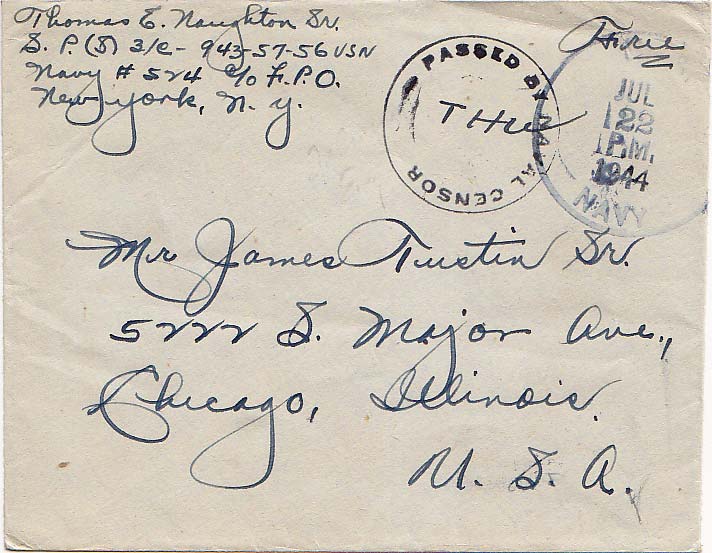 Thomas E. Naughton Sr.
S. P. (S) 3/c - 943-57-56 USN
Navy # 524 c/o F.P.O.
New York, N. Y.
Free
PASSED BY NAVAL CENSOR
JUL
22
1 P.M.
1944
NAVY
Mr James Tustin Sr.
5222 S. Major Ave.,
Chicago, Illinois.
U. S. A.